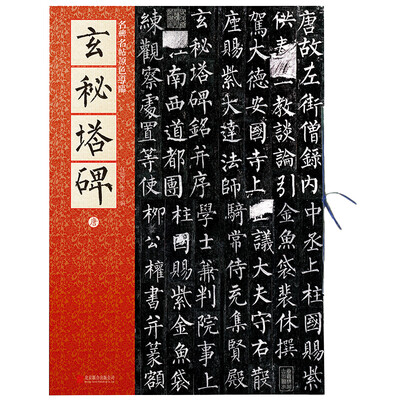 名碑名帖原色導臨
玄秘塔碑
唐
唐故左街僧錄内中丞上柱國賜紫
供 教談論引金魚袋裴休撰
駕大德安國寺上 議大夫守右散
座賜紫大達法師騎常侍充集賢殿
玄秘塔碑銘并序學士兼判院事上
江南西道都團柱國賜紫金魚袋
練觀察處置等使柳公權書并篆額